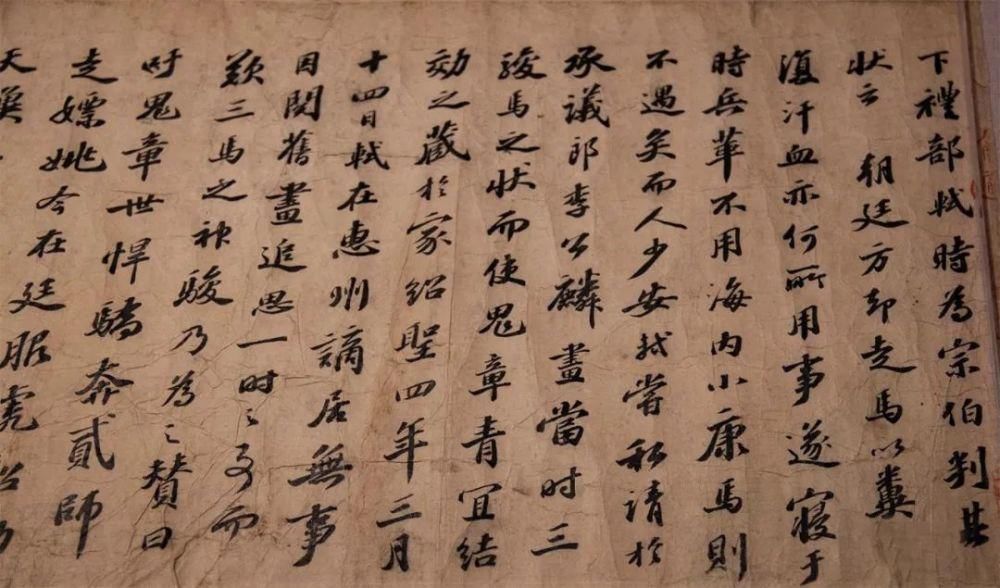 下禮部軾時為宗伯判其
狀云 朝廷方却走馬以糞
復汗血亦何所用事遂寢于
時兵革不用海內小康馬則
不遇矣而人少安軾嘗私請於
承議郎李公麟畫當时三
駿馬之状而使鬼章青宜結
効之藏於家紹聖四年三月
十四日軾在惠州謫居無事
因閱舊畫追思一时之事而
歎三馬之神駿乃為之贊曰
吁鬼章世悍驕奔貳師
走嫖姚今在廷服虎
天